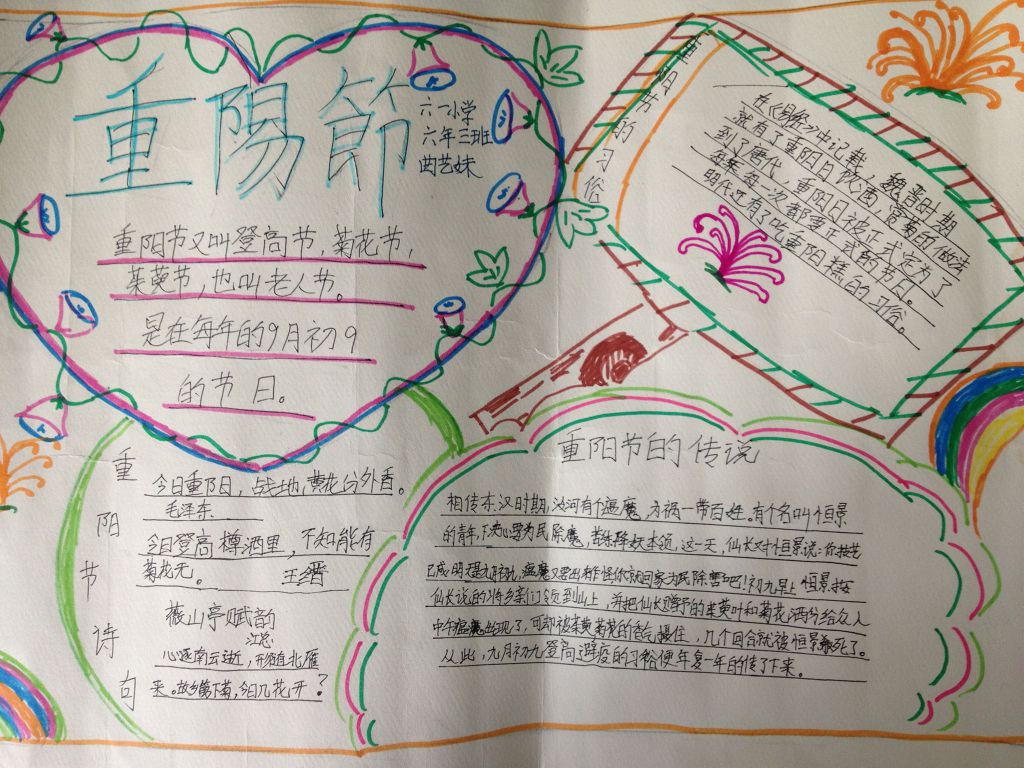 重陽節
六一小学
六年三班
曲艺妹
重阳节又叫登高节，菊花节，
茱萸节，也叫老人节。
是在每年的9月初9
的节日。
重阳节的习俗
在《易经》中记载，魏晋时期
就有了重阳日饮酒，赏菊的做法
到了唐代，重阳日被正式定为了
每年一次都要正式的节日。
明代还有了吃重阳糕的习俗。
重阳节诗句
今日重阳日，战地，黄花分外香。
毛泽东
今日登高樽酒里，不知能有
菊花无。 王缙
薇山亭赋韵
江总
心逐南云逝，形随北雁
来。故乡篱下菊，今日几花开？
重阳节的传说
相传东汉时期，汝河有个瘟魔，为祸一带百姓。有个名叫恒景
的青年，下决心要为民除魔，苦练降妖本领，这一天，仙长对恒景说：你技艺
已成，明天是九月初九，瘟魔又要出来作怪你就回家为民除害吧！初九早上恒景按
仙长说的将乡亲们领到山上，并把仙长赠予的茱萸叶和菊花酒分给众人
中午瘟魔出现了，可却被茱萸菊花的香气慑住，几个回合就被恒景杀死了。
从此，九月初九登高避疫的习俗便年复一年的传了下来。